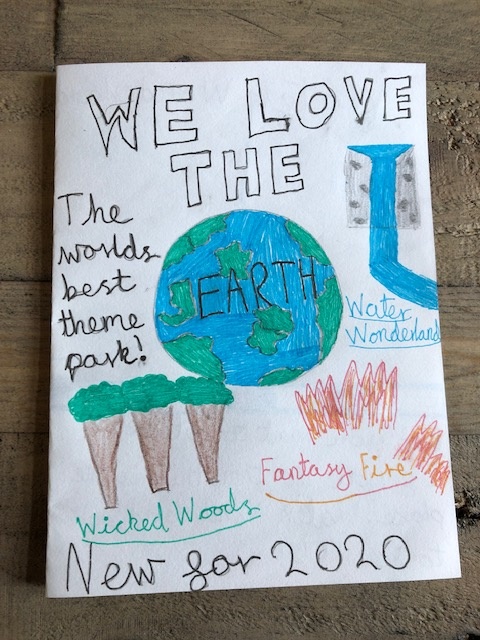 WE LOVE
THE
EARTH
The
worlds
best
theme
park!
Water
Wonderland
Fantasy Fire
Wicked Woods
New for 2020